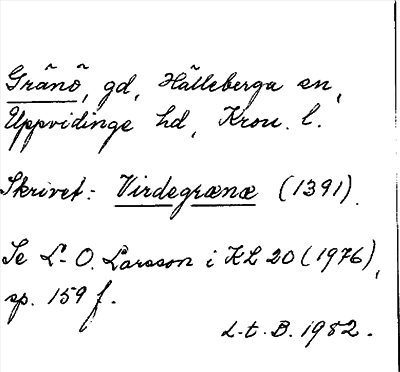 Gränö, gd, Hälleberga sn,
Uppvidinge hd, Kron. l.
Skrivet: Virdegrænæ (1391).
Se L-O. Larsson i KL 20 (1976),
sp. 159 f.
L.t.B. 1982.